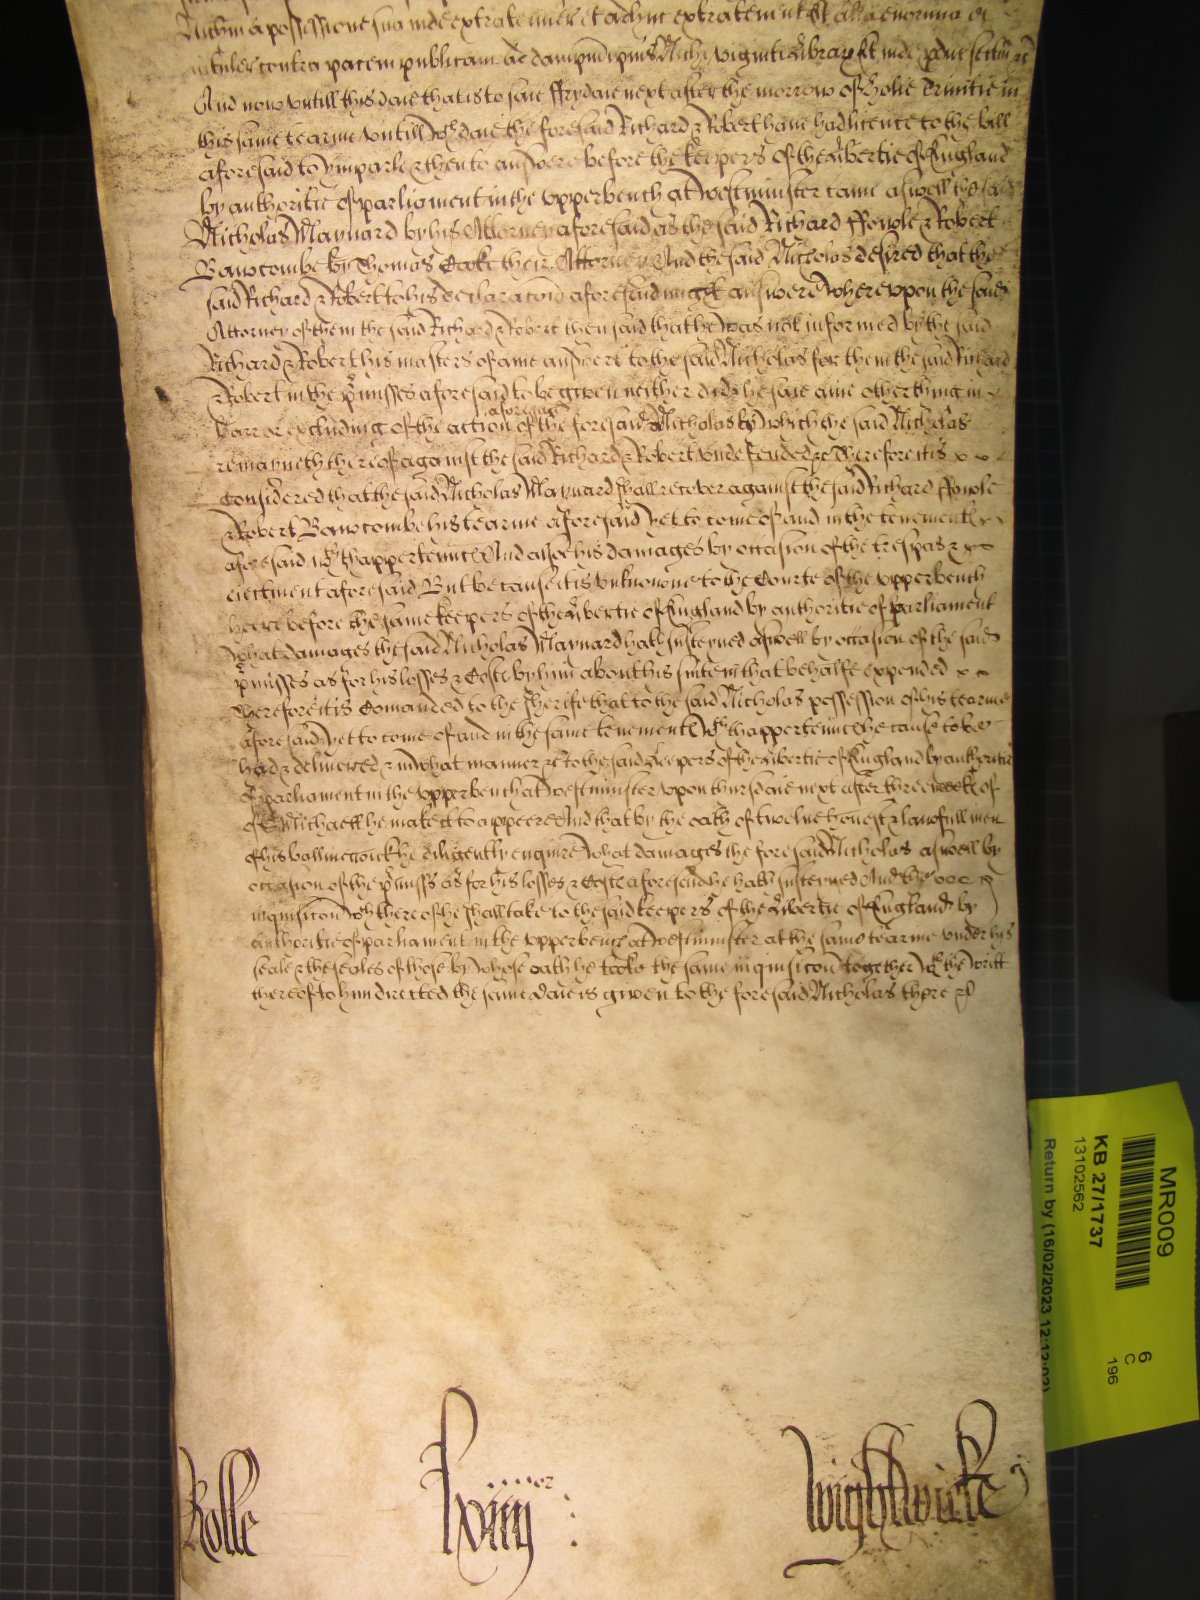 Nichm a possessione sua inde extrate iner et adhuc extratenent Et alia enormia ei
intuler contra pacem publicam ad dampnu ipius Nichi viginti librar Et inde pduc sectam &c
And now untill this daie that is to saie ffrydaie next after the morrow of Holie Trinitie in
this same tearme untill wch daie the foresaid Richard & Robert have had licence to the bill
aforesaid to ymparle & then to answere before the keepers of the libertie of England
by authoritie of parliament in the upper bench at Westminster came aswell the said
Nicholas Maynard by his Attorney aforesaid as the said Richard ffowle & Robert
Bawcombe by Thomas Cooke their Attorney And the said Nicholas desired that the
said Richard & Robert to his declaracon aforesaid might answere Whereupon the said
Attorney of them the said Richard & Robert then said that he was not informed by the said
Richard & Robert his masters of anie answere to the said Nicholas for them the said Richard
& Robert in the pmisses aforesaid to be given neither did he saie anie other thing in
barr or excluding of the action aforesaid of the foresaid Nicholas by which the said Nicholas
remayneth thereof against the said Richard & Robert undefended &c Therefore it is
Considered that the said Nicholas Maynard shall recover against the said Richard ffowle
& Robert Bawcombe his tearme aforesaid yet to come of and in the tenements
aforesaid wth thappertennces And alsoe his damages by occasion of the trespas &
eiectment aforesaid But because it is unknowne to the Courte of the upper bench
heere before the same keepers of the libertie of England by authoritie of parliament
what damages the said Nicholas Maynard hath susteyned aswell by occasion of the said
pmisses as for his losses & Costs by him about his suite in that behalfe expended
Therefore it is Comanded to the Sherife that to the said Nicholas possession of his tearme
aforesaid yet to come of and in the same tenements wth thappertennces he cause to bee
had & delivered & in what manner &c to the said keepers of the libertie of England by authoritie
of parliament in the upper bench at Westminster upon thursdaie next after three weeks of
of St Michaell he make it to appeere And that by the oath of twelve honest & lawfull men
of his balliwicke he diligently enquire what damages the foresaid Nicholas aswell by
occasion of the pmisss as for his losses & Costs aforesaid he hath susteyned And the
inquisicon wch thereof he shall take to the said keepers of the libertie of England by
authoritie of parliament in the upper bench at Westminster at the same tearme under his
seale & the seales of those by whose oath he tooke the same inquisicon together wth the writt
thereof to him directed the same daie is given to the foresaid Nicholas there &c
Rolle
Wightwicke
MR009
KB 27/1737
13102562
Return by (16/02/2023 12:12:02)
6
C
196